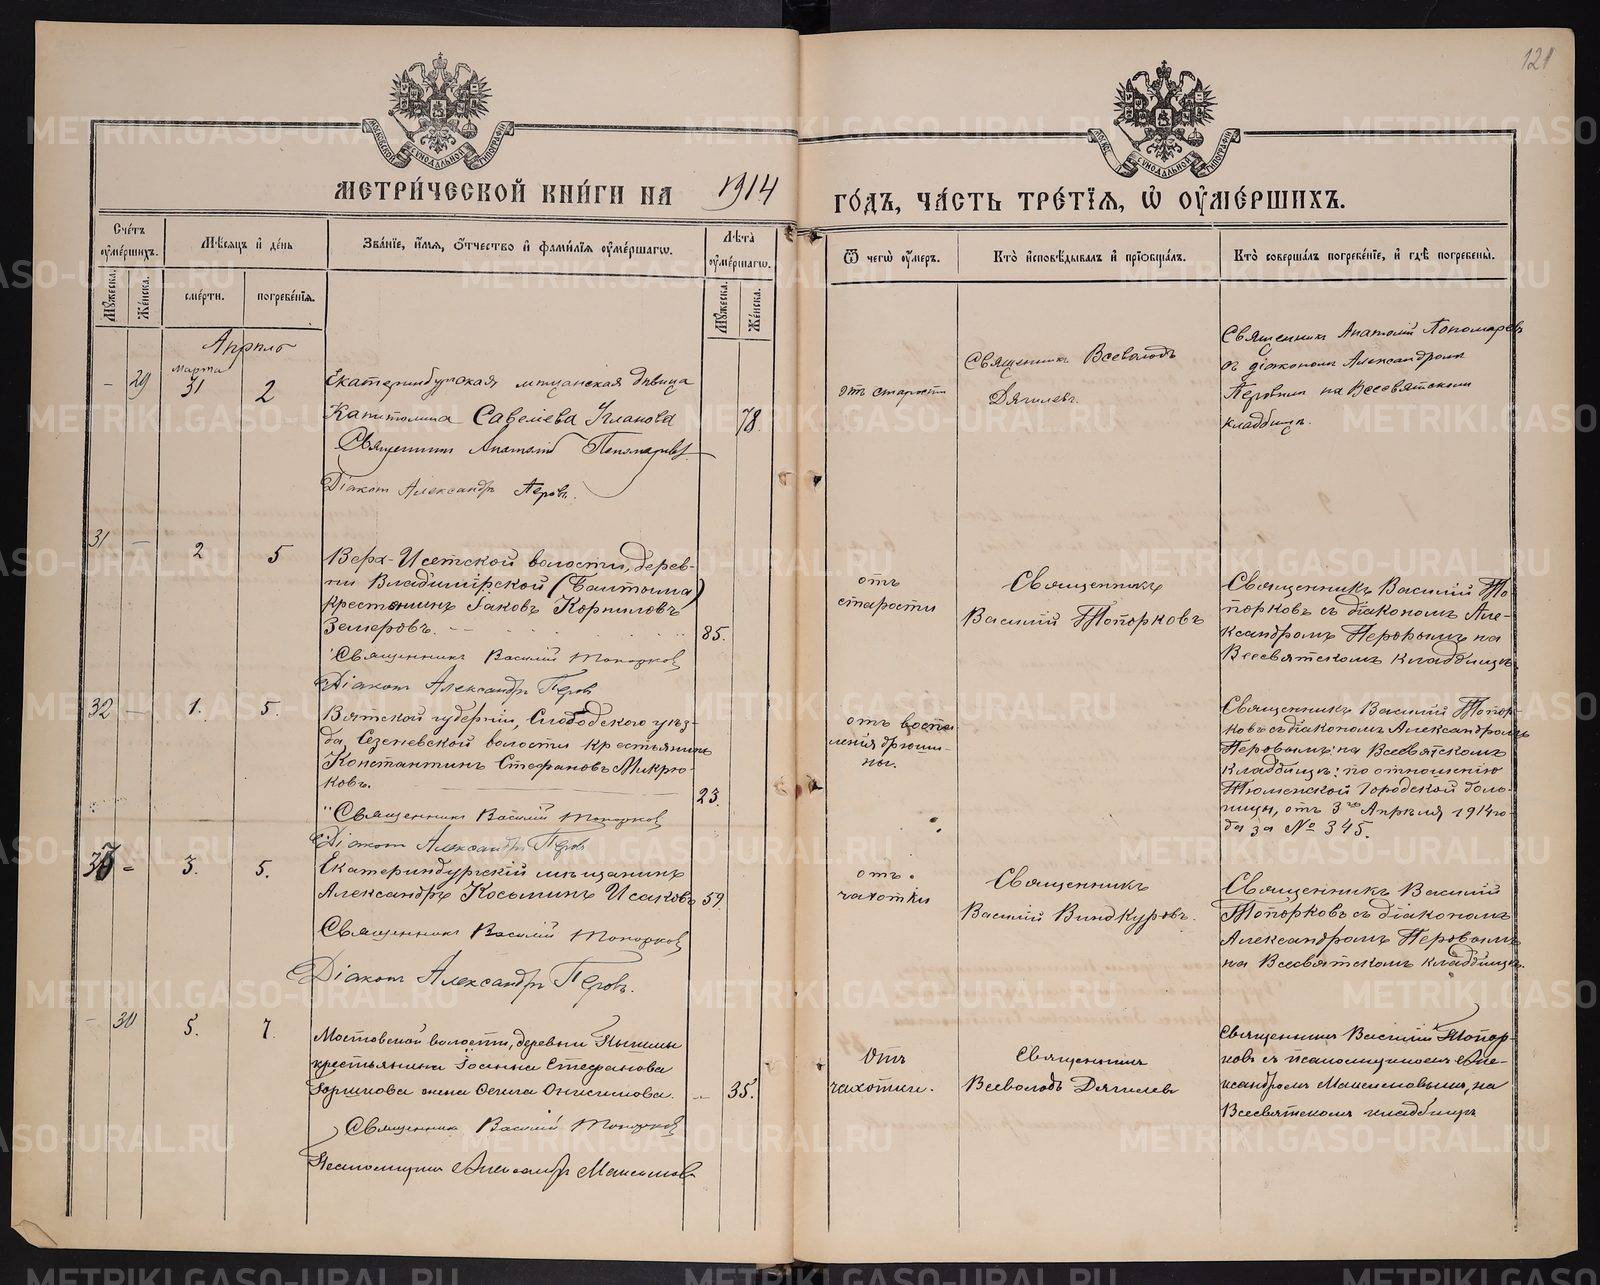 121
МЕТРИ́ЧЕСКОЙ КНИ́ГИ НА 1914 ГО́ДЪ, ЧА́СТЬ ТРЕ́ТЇѦ, Ѡ ОУМЕ́РШИХЪ.
Сче́тъ оуме́ршихъ.
Мꙋжеска.
Же́нска.
Мѣ́сяцъ и де́нь
сме́рти.
погребе́нїя.
Зва́нїе, и́мя, о́тчество и фами́лїя оуме́ршагѡ.
Лѣ́та оуме́ршагѡ.
Мꙋжеска.
Же́нска.
Ѿ чегѡ̀ оу́меръ.
Кто̀ исповѣ́дывалъ и прїѡбща́лъ.
Кто̀ соверша́лъ погребе́нїе, и гдѣ̀ погребены̀.
Апрѣль
– 29
марта
31
2
Екатеринбургская мѣщанская дѣвица
Капитолина Савелiева Уланова
78.
Священникъ Анатолiй Пономаревъ
Дiаконъ Александръ Перовъ.
отъ старости
Священникъ Всеволодъ
Дягилевъ.
Священникъ Анатолiй Пономаревъ
съ дiакономъ Александромъ
Перовымъ на Всесвятскомъ
кладбищѣ.
31 –
2
5
Верх-Исетской волости, дерев-
ни Владимiрской
крестьянинъ Iаковъ Корниловъ
Земеровъ.
85.
Священникъ Василiй Топорковъ
Дiаконъ Александръ Перовъ
отъ
старости
Священникъ
Василiй Топорковъ
Священникъ Василiй То-
порковъ съ дiакономъ Але-
ксандромъ Перовымъ на
Всесвятскомъ кладбищѣ.
32 –
1.
5.
Вятской губернiи, Слободского уѣз-
да, Сезеневской волости крестьянинъ
Константинъ Стефановъ Микрю-
ковъ.
23.
Священникъ Василiй Топорковъ
Дiаконъ Александръ Перовъ
отъ воспа-
ленiя брюши-
ны.
Священникъ Василiй Топор-
ковъ съ дiакономъ Александромъ
Перовымъ на Всесвятскомъ
кладбищѣ: по отношенiю
Тюменской Городской боль-
ницы, отъ 3го Апрѣля 1914 го-
да за № 345.
33 –
3.
5.
Екатеринбургскiй мѣщанинъ
Александръ Косьминъ Исаковъ
59.
Священникъ Василiй Топорковъ
Дiаконъ Александръ Перовъ.
отъ
чахотки
Священникъ
Василiй Винокуровъ.
Священникъ Василiй
Топорковъ съ дiакономъ
Александромъ Перовымъ
на Всесвятскомъ кладбищѣ.
– 30
5.
7.
Мостовской волости, деревни
крестьянина Iоанна Стефанова
жена Онисимова.
35.
Священникъ Василiй Топорковъ
Псаломщикъ Александръ Максимовъ
Отъ
чахотки.
Священникъ
Всеволодъ Дягилевъ
Священникъ Василiй Топор-
ковъ съ псаломщикомъ Але-
ксандромъ Максимовымъ, на
Всесвятскомъ кладбищѣ
METRIKI.GASO-URAL.RU